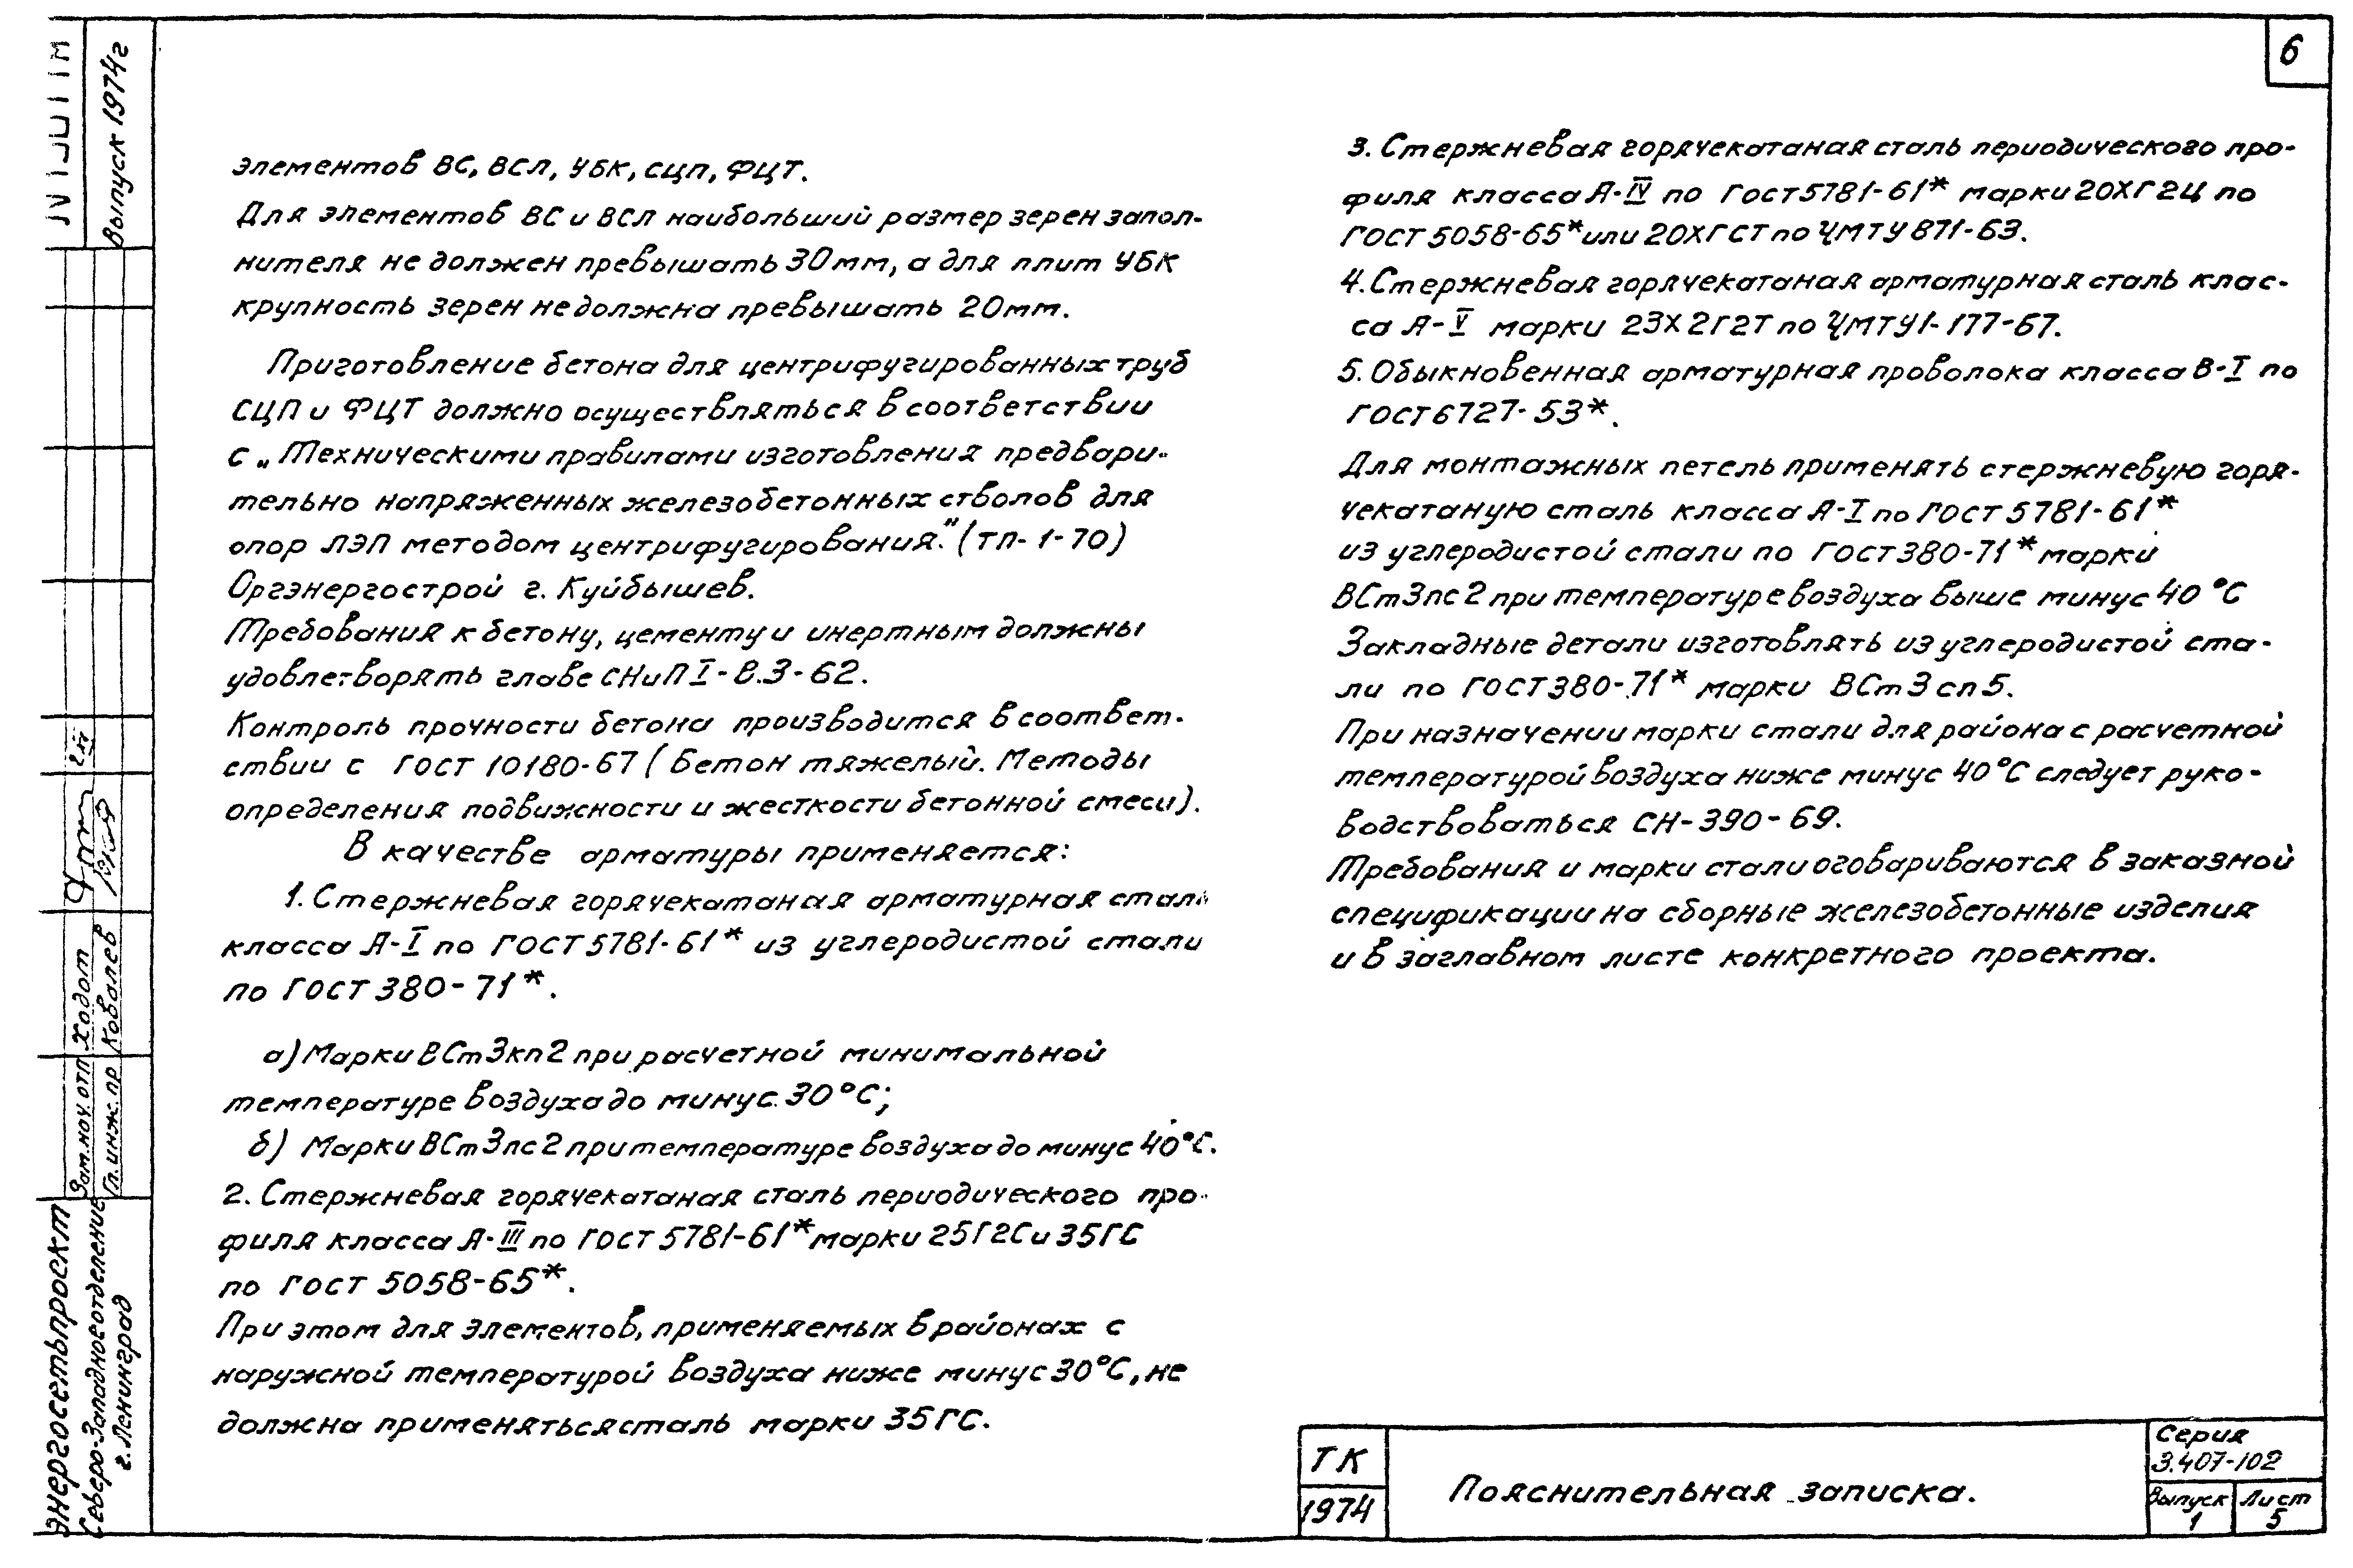 6
элементов ВС, ВСЛ, УБК, СЦП, ФЦТ.
Для элементов ВС и ВСЛ наибольший размер зерен запол-
нителя не должен превышать 30мм, а для плит УБК
крупность зерен не должна превышать 20мм.
Приготовление бетона для центрифугированных труб
СЦП и ФЦТ должно осуществляться в соответствии
с „Техническими правилами изготовления предвари-
тельно напряженных железобетонных стволов для
опор ЛЭП методом центрифугирования." (ТП-1-70)
Оргэнергострой г. Куйбышев.
Требования к бетону, цементу и инертным должны
удовлетворять главе СНиП I-В.3-62.
Контроль прочности бетона производится в соответ-
ствии с ГОСТ 10180-67 (Бетон тяжелый. Методы
определения подвижности и жесткости бетонной смеси).
В качестве арматуры применяется:
1. Стержневая горячекатаная арматурная сталь
класса А-I по ГОСТ 5781-61* из углеродистой стали
по ГОСТ 380-71*.
а) Марки ВСт3кп2 при расчетной минимальной
температуре воздуха до минус 30°С;
б) Марки ВСт3пс2 при температуре воздуха до минус 40°С.
2. Стержневая горячекатаная сталь периодического про-
филя класса А-III по ГОСТ 5781-61* марки 25Г2С и 35ГС
по ГОСТ 5058-65*.
При этом для элементов, применяемых в районах с
наружной температурой воздуха ниже минус 30°С, не
должна применяться сталь марки 35ГС.
3. Стержневая горячекатаная сталь периодического про-
филя класса А-IV по ГОСТ 5781-61* марки 20ХГ2Ц по
ГОСТ 5058-65* или 20ХГСТ по ЧМТУ 871-63.
4. Стержневая горячекатаная арматурная сталь клас-
са А-V марки 23Х2Г2Т по ЧМТУ 1-177-67.
5. Обыкновенная арматурная проволока класса В-I по
ГОСТ 6727-53*.
Для монтажных петель применять стержневую горя-
чекатаную сталь класса А-I по ГОСТ 5781-61*
из углеродистой стали по ГОСТ 380-71* марки
ВСт3пс2 при температуре воздуха выше минус 40°С
Закладные детали изготовлять из углеродистой ста-
ли по ГОСТ 380-71* марки ВСт3сп5.
При назначении марки стали для района с расчетной
температурой воздуха ниже минус 40°С следует руко-
водствоваться СН-390-69.
Требования и марки стали оговариваются в заказной
спецификации на сборные железобетонные изделия
и в заглавном листе конкретного проекта.
Выпуск 1974г
Зам.нач.отп Ходот
Гл.инж.пр Ковалев
Энергосетьпроект
Северо-Западное отделение
г. Ленинград
ТК
1974
Пояснительная записка.
Серия
3.407-102
Выпуск
1
Лист
5